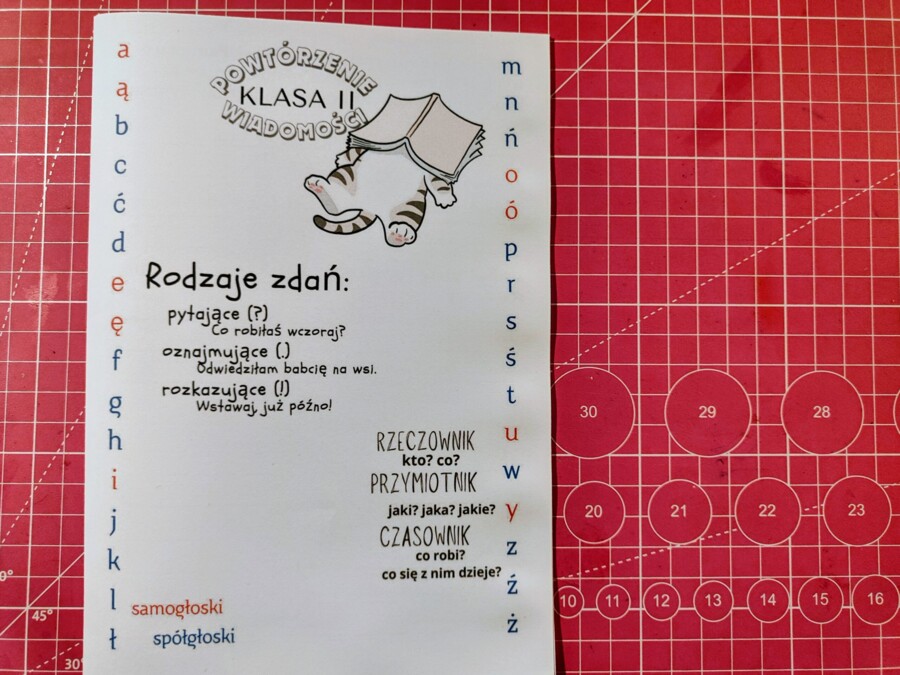 POWTÓRZENIE
KLASA II
WIADOMOŚCI
a
ą
b
c
ć
d
e
ę
f
g
h
i
j
k
l
ł
m
n
ń
o
ó
p
r
s
ś
t
u
w
y
z
ź
ż
Rodzaje zdań:
pytające (?)
Co robiłaś wczoraj?
oznajmujące (.)
Odwiedziłam babcię na wsi.
rozkazujące (!)
Wstawaj, już późno!
RZECZOWNIK
kto? co?
PRZYMIOTNIK
jaki? jaka? jakie?
CZASOWNIK
co robi?
co się z nim dzieje?
samogłoski
spółgłoski
30 29 28
20 21 22 23
10 11 12 13 14 15 16
0°
45°
30°